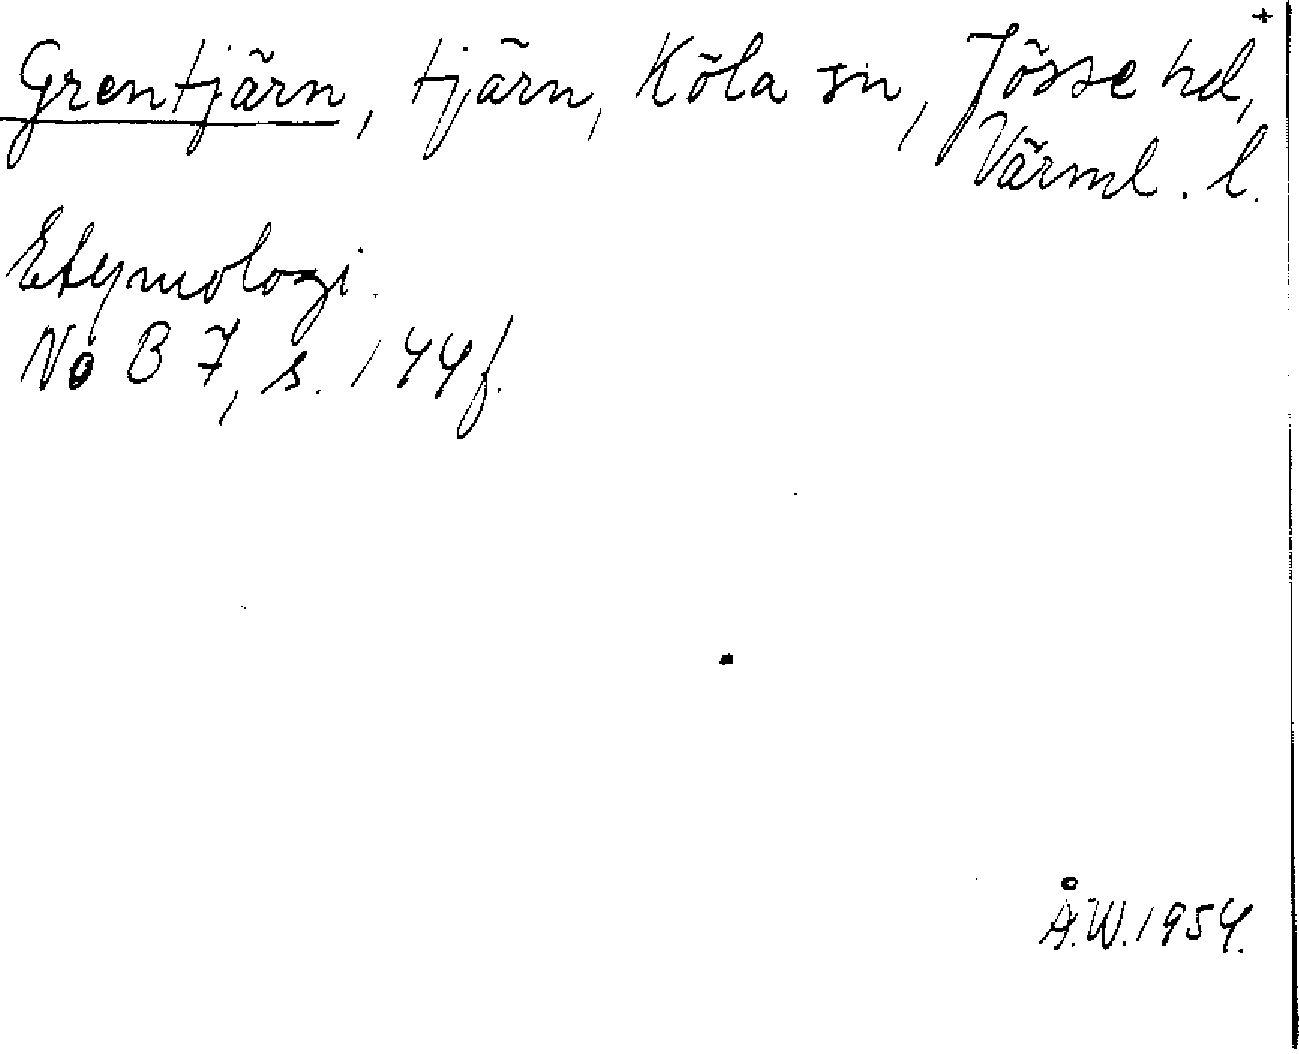 Grentjärn, tjärn, Köla sn, Jösse hd, +
Värml. l.
Etymologi.
No B 7, s. 144 f.
Å.W. 1954.